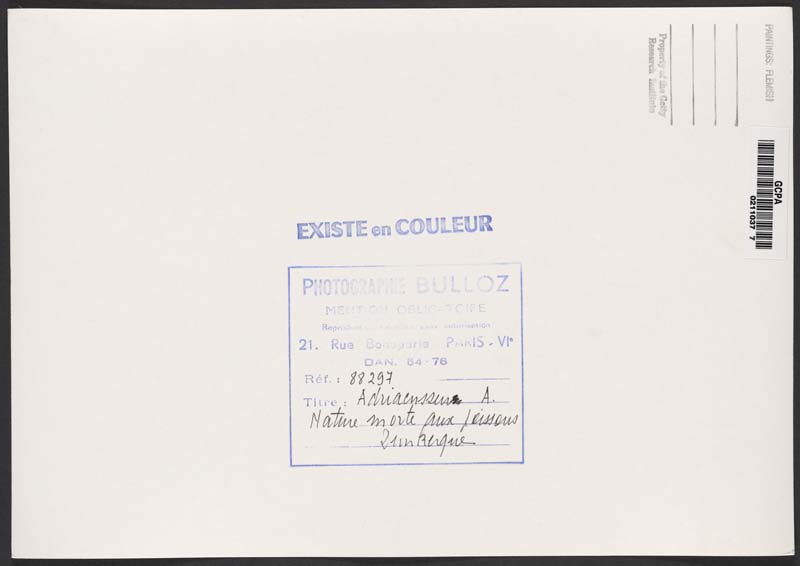 PAINTINGS: FLEMISH
Property of the Getty
Research Institute
GCPA
0211037 7
EXISTE en COULEUR
PHOTOGRAPHIE BULLOZ
MENTION OBLIGATOIRE
Reproduction interdite sans autorisation
21. Rue Bonaparte PARIS - VIe
DAN. 84-76
Réf.: 88297
Titre: Adriaenssen A.
Nature morte aux poissons
Dunkerque